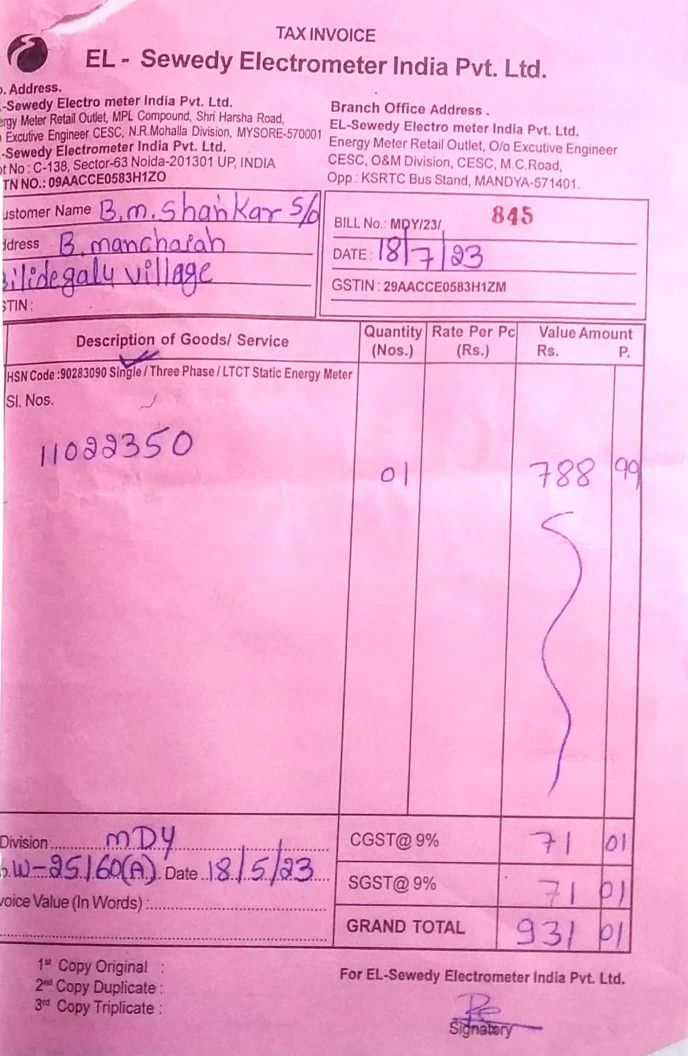 TAX INVOICE
EL - Sewedy Electrometer India Pvt. Ltd.
. Address.
-Sewedy Electro meter India Pvt. Ltd.
ergy Meter Retail Outlet, MPL Compound, Shri Harsha Road,
Excutive Engineer CESC, N.R.Mohalla Division, MYSORE-570001
-Sewedy Electrometer India Pvt. Ltd.
ot No : C-138, Sector-63 Noida-201301 UP, INDIA
TN NO.: 09AACCE0583H1ZO
Branch Office Address .
EL-Sewedy Electro meter India Pvt. Ltd.
Energy Meter Retail Outlet, O/o Excutive Engineer
CESC, O&M Division, CESC, M.C.Road,
Opp : KSRTC Bus Stand, MANDYA-571401.
ustomer Name B.m. Shankar S/o
ddress B. manchaiah
Bilidegalu village
STIN :
BILL No.: MDY/23/ 845
DATE : 18/7/23
GSTIN : 29AACCE0583H1ZM
Description of Goods/ Service
Quantity (Nos.)
Rate Per Pc (Rs.)
Value Amount
Rs. P.
HSN Code :90283090 Single / Three Phase / LTCT Static Energy Meter
Sl. Nos.
11022350
01 788 99
Division MDY
W-25160(A) Date 18/5/23
voice Value (In Words) :
CGST@ 9% 71 01
SGST@ 9% 71 01
GRAND TOTAL 931 01
1st Copy Original :
2nd Copy Duplicate :
3rd Copy Triplicate :
For EL-Sewedy Electrometer India Pvt. Ltd.
Signatory